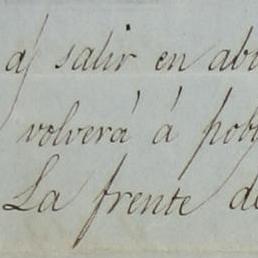 al salir en ab
volverá á pob
La frente de